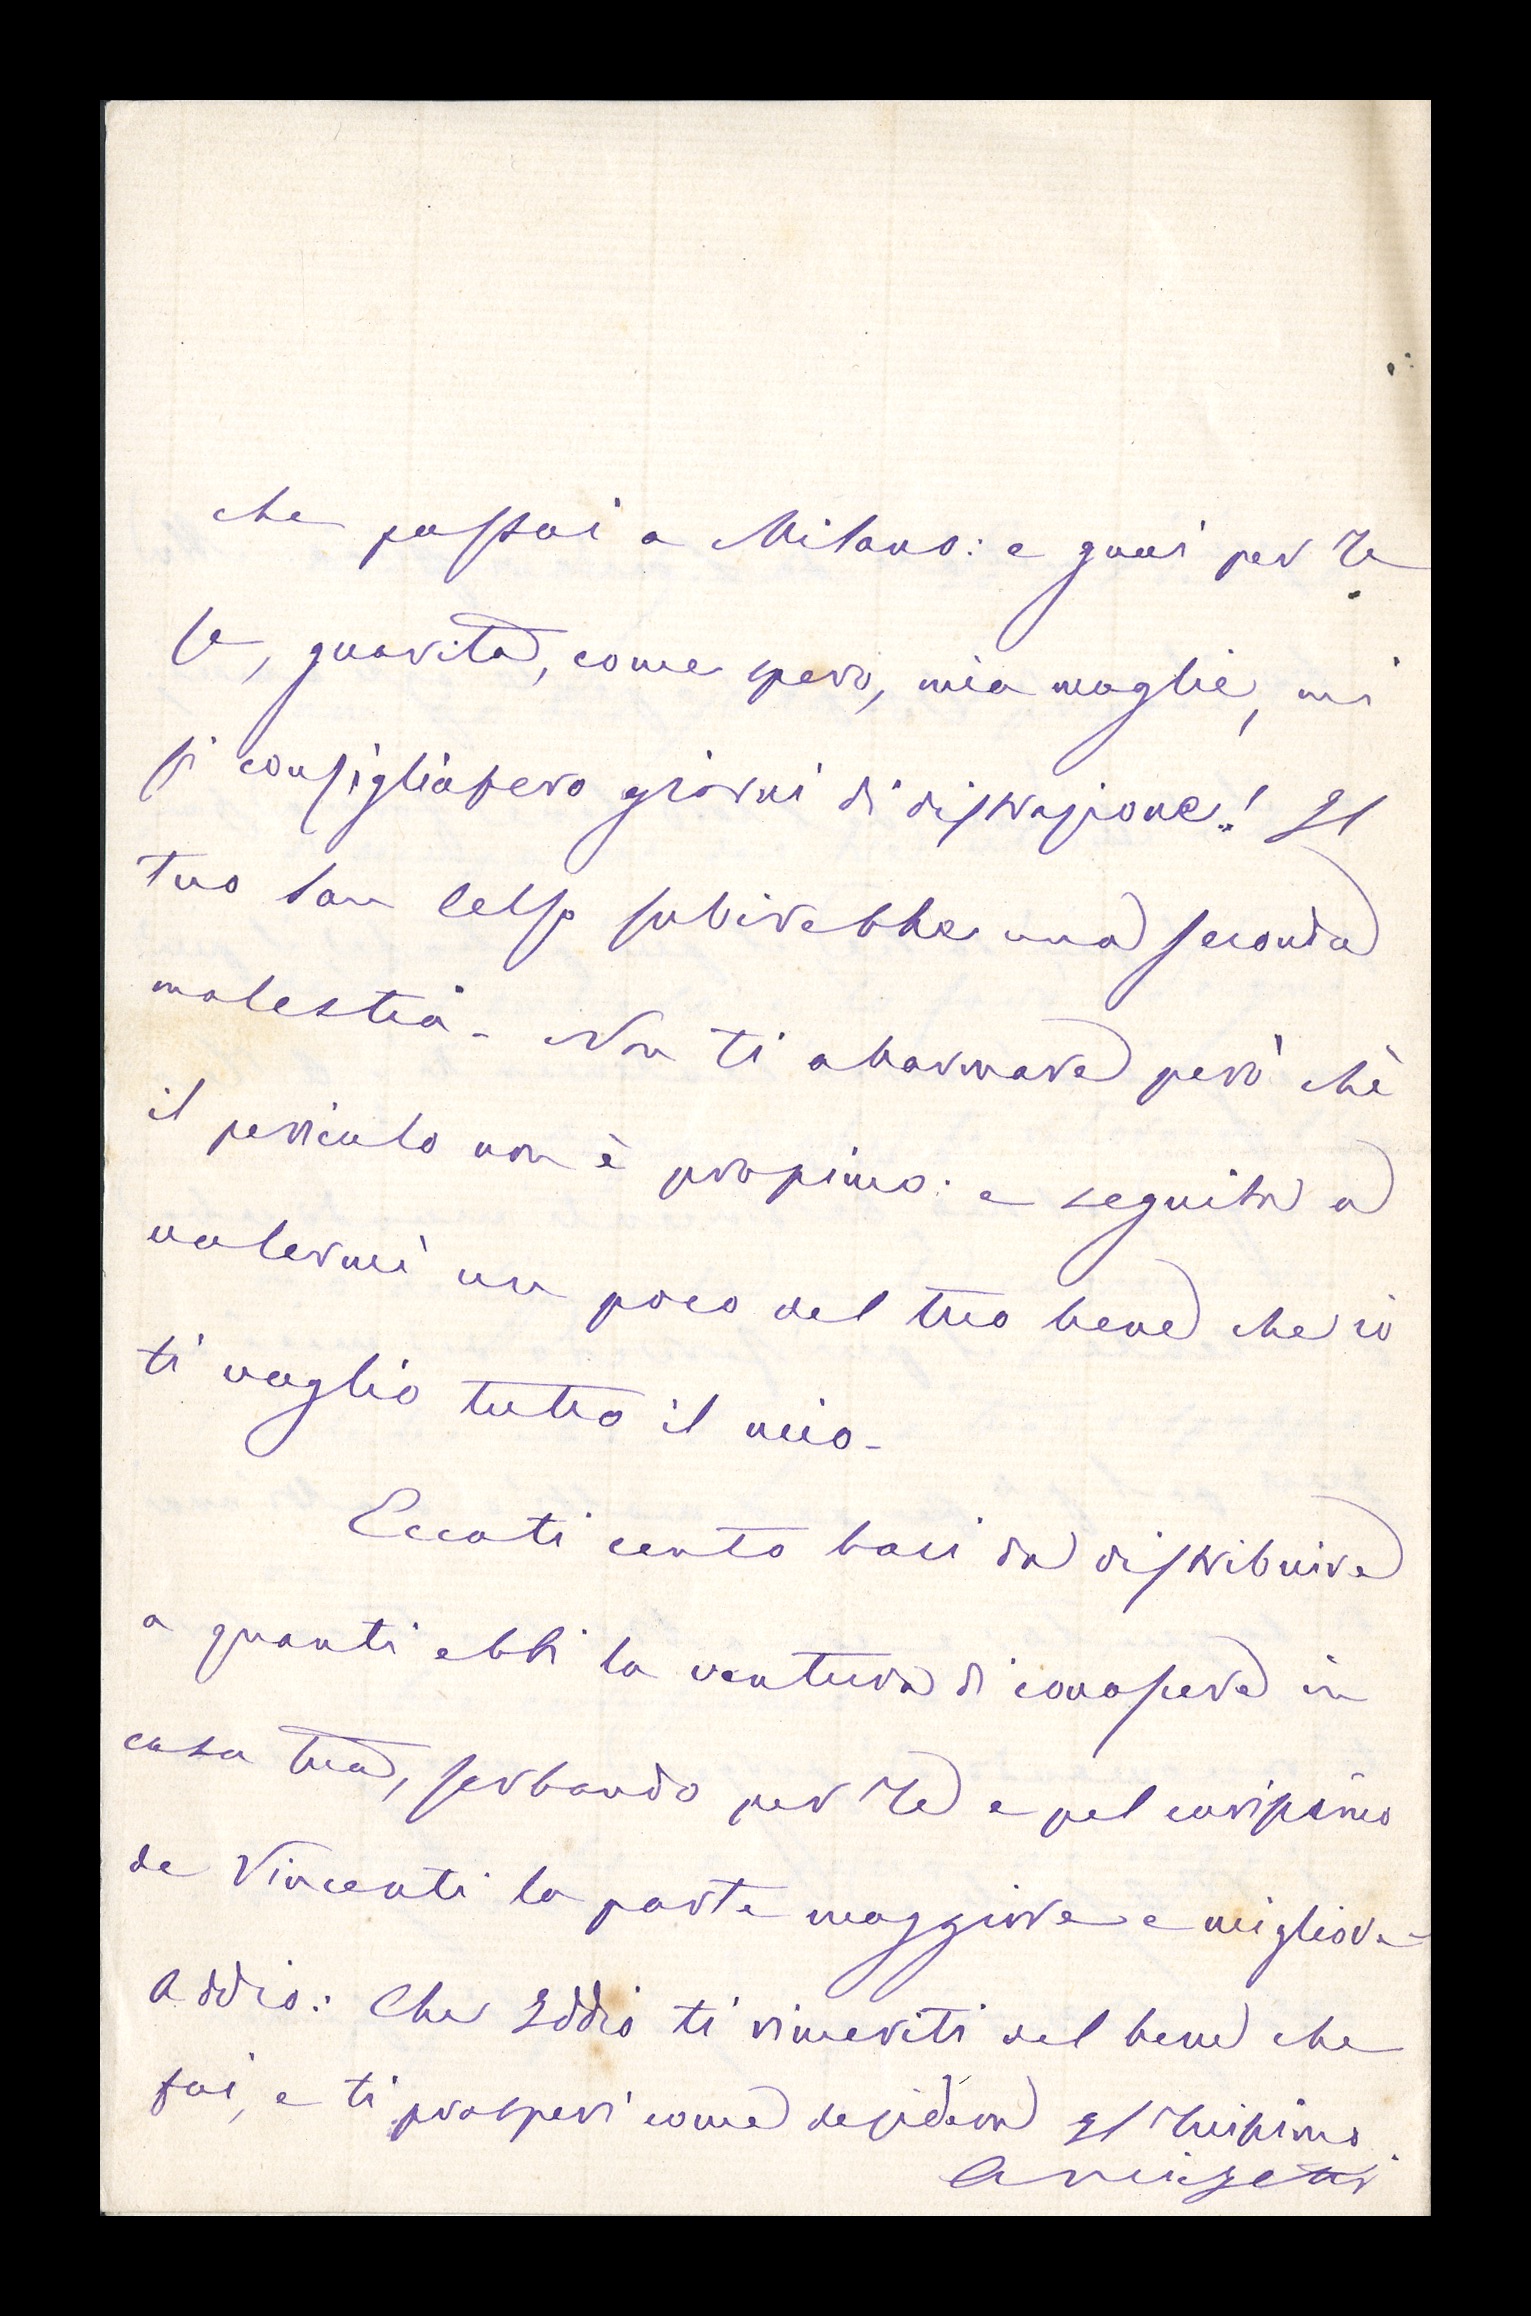 che passai a Milano: e guai per Te
se, guarita, come spero, mia moglie, mi
si consigliassero giorni di distrazione! Il
tuo San Celso subirebbe una seconda
molestia - Non ti allarmare però chè
il pericolo non è prossimo: e seguita a
volermi un poco del tuo bene che io
ti voglio tutto il mio -
Eccoti cento baci da distribuire
a quanti ebbi la ventura di conoscere in
casa tua, serbando per Te e pel carissimo
de Vincenti la parte maggiore e migliore -
Addio: Che Iddio ti rimeriti del bene che
fai, e ti prosperi come desidera Il Tuissimo